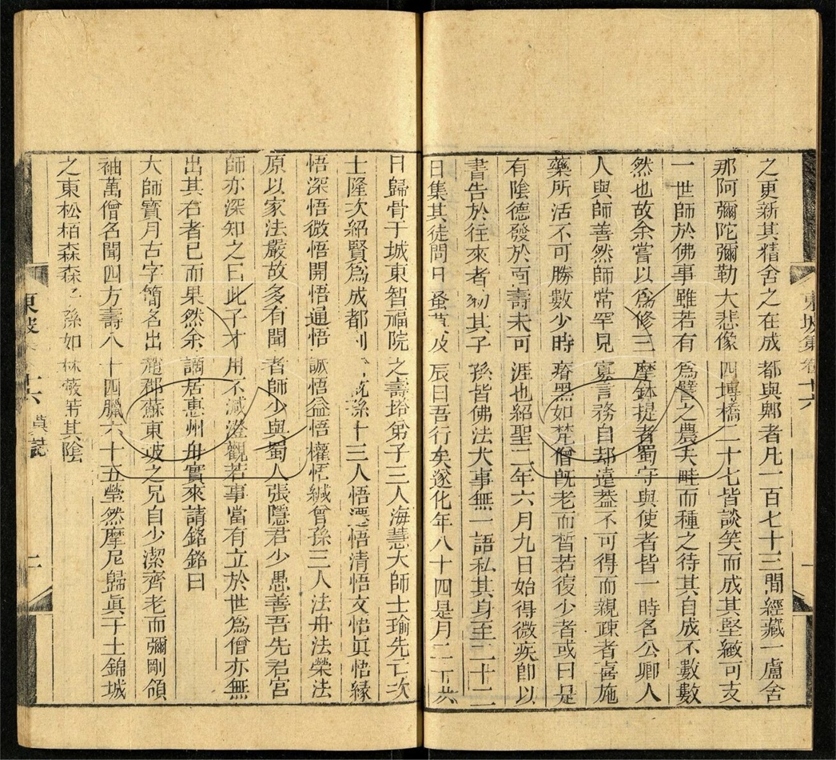 之更新其精舍之在成都與郫者凡一百七十三間經藏一盧舍
那阿彌陀彌勒大悲像四塼橋二十七皆談笑而成其堅緻可支
一世師於佛事雖若有爲譬之農夫畦而種之待其自成不數數
然也故余嘗以爲修三摩鉢提者蜀守與使者皆一時名公卿人
人與師善然師常罕見寡言務自却遠葢不可得而親疎者喜施
藥所活不可勝數少時瘠黑如梵僧旣老而晳若復少者或曰是
有陰德發於面壽未可涯也紹聖二年六月九日始得微疾卽以
書告於往來者勑其子孫皆佛法大事無一語私其身至二十二
日集其徒問日蚤莫及辰曰吾行矣遂化年八十四是月二十六
日歸骨于城東智福院之壽塔弟子三人海慧大師士瑜先亡次
士隆次紹賢爲成都副 孫十三人悟遷悟清悟文悟眞悟緣
悟深悟微悟開悟通悟誠悟益悟權悟緘曾孫三人法舟法榮法
原以家法嚴故多有聞者師少與蜀人張隱君少愚善吾先君宮
師亦深知之曰此子才用不減澄觀若事當有立於世爲僧亦無
出其右者已而果然余謫居惠州舟實來請銘銘曰
大師寶月古字簡名出趙郡蘇東坡之兄自少潔齊老而彌剛領
袖萬僧名聞四方壽八十四臘六十五瑩然摩尼歸眞于土錦城
之東松栢森森子孫如林蔽芾其陰
東坡集卷十六
東坡 十六